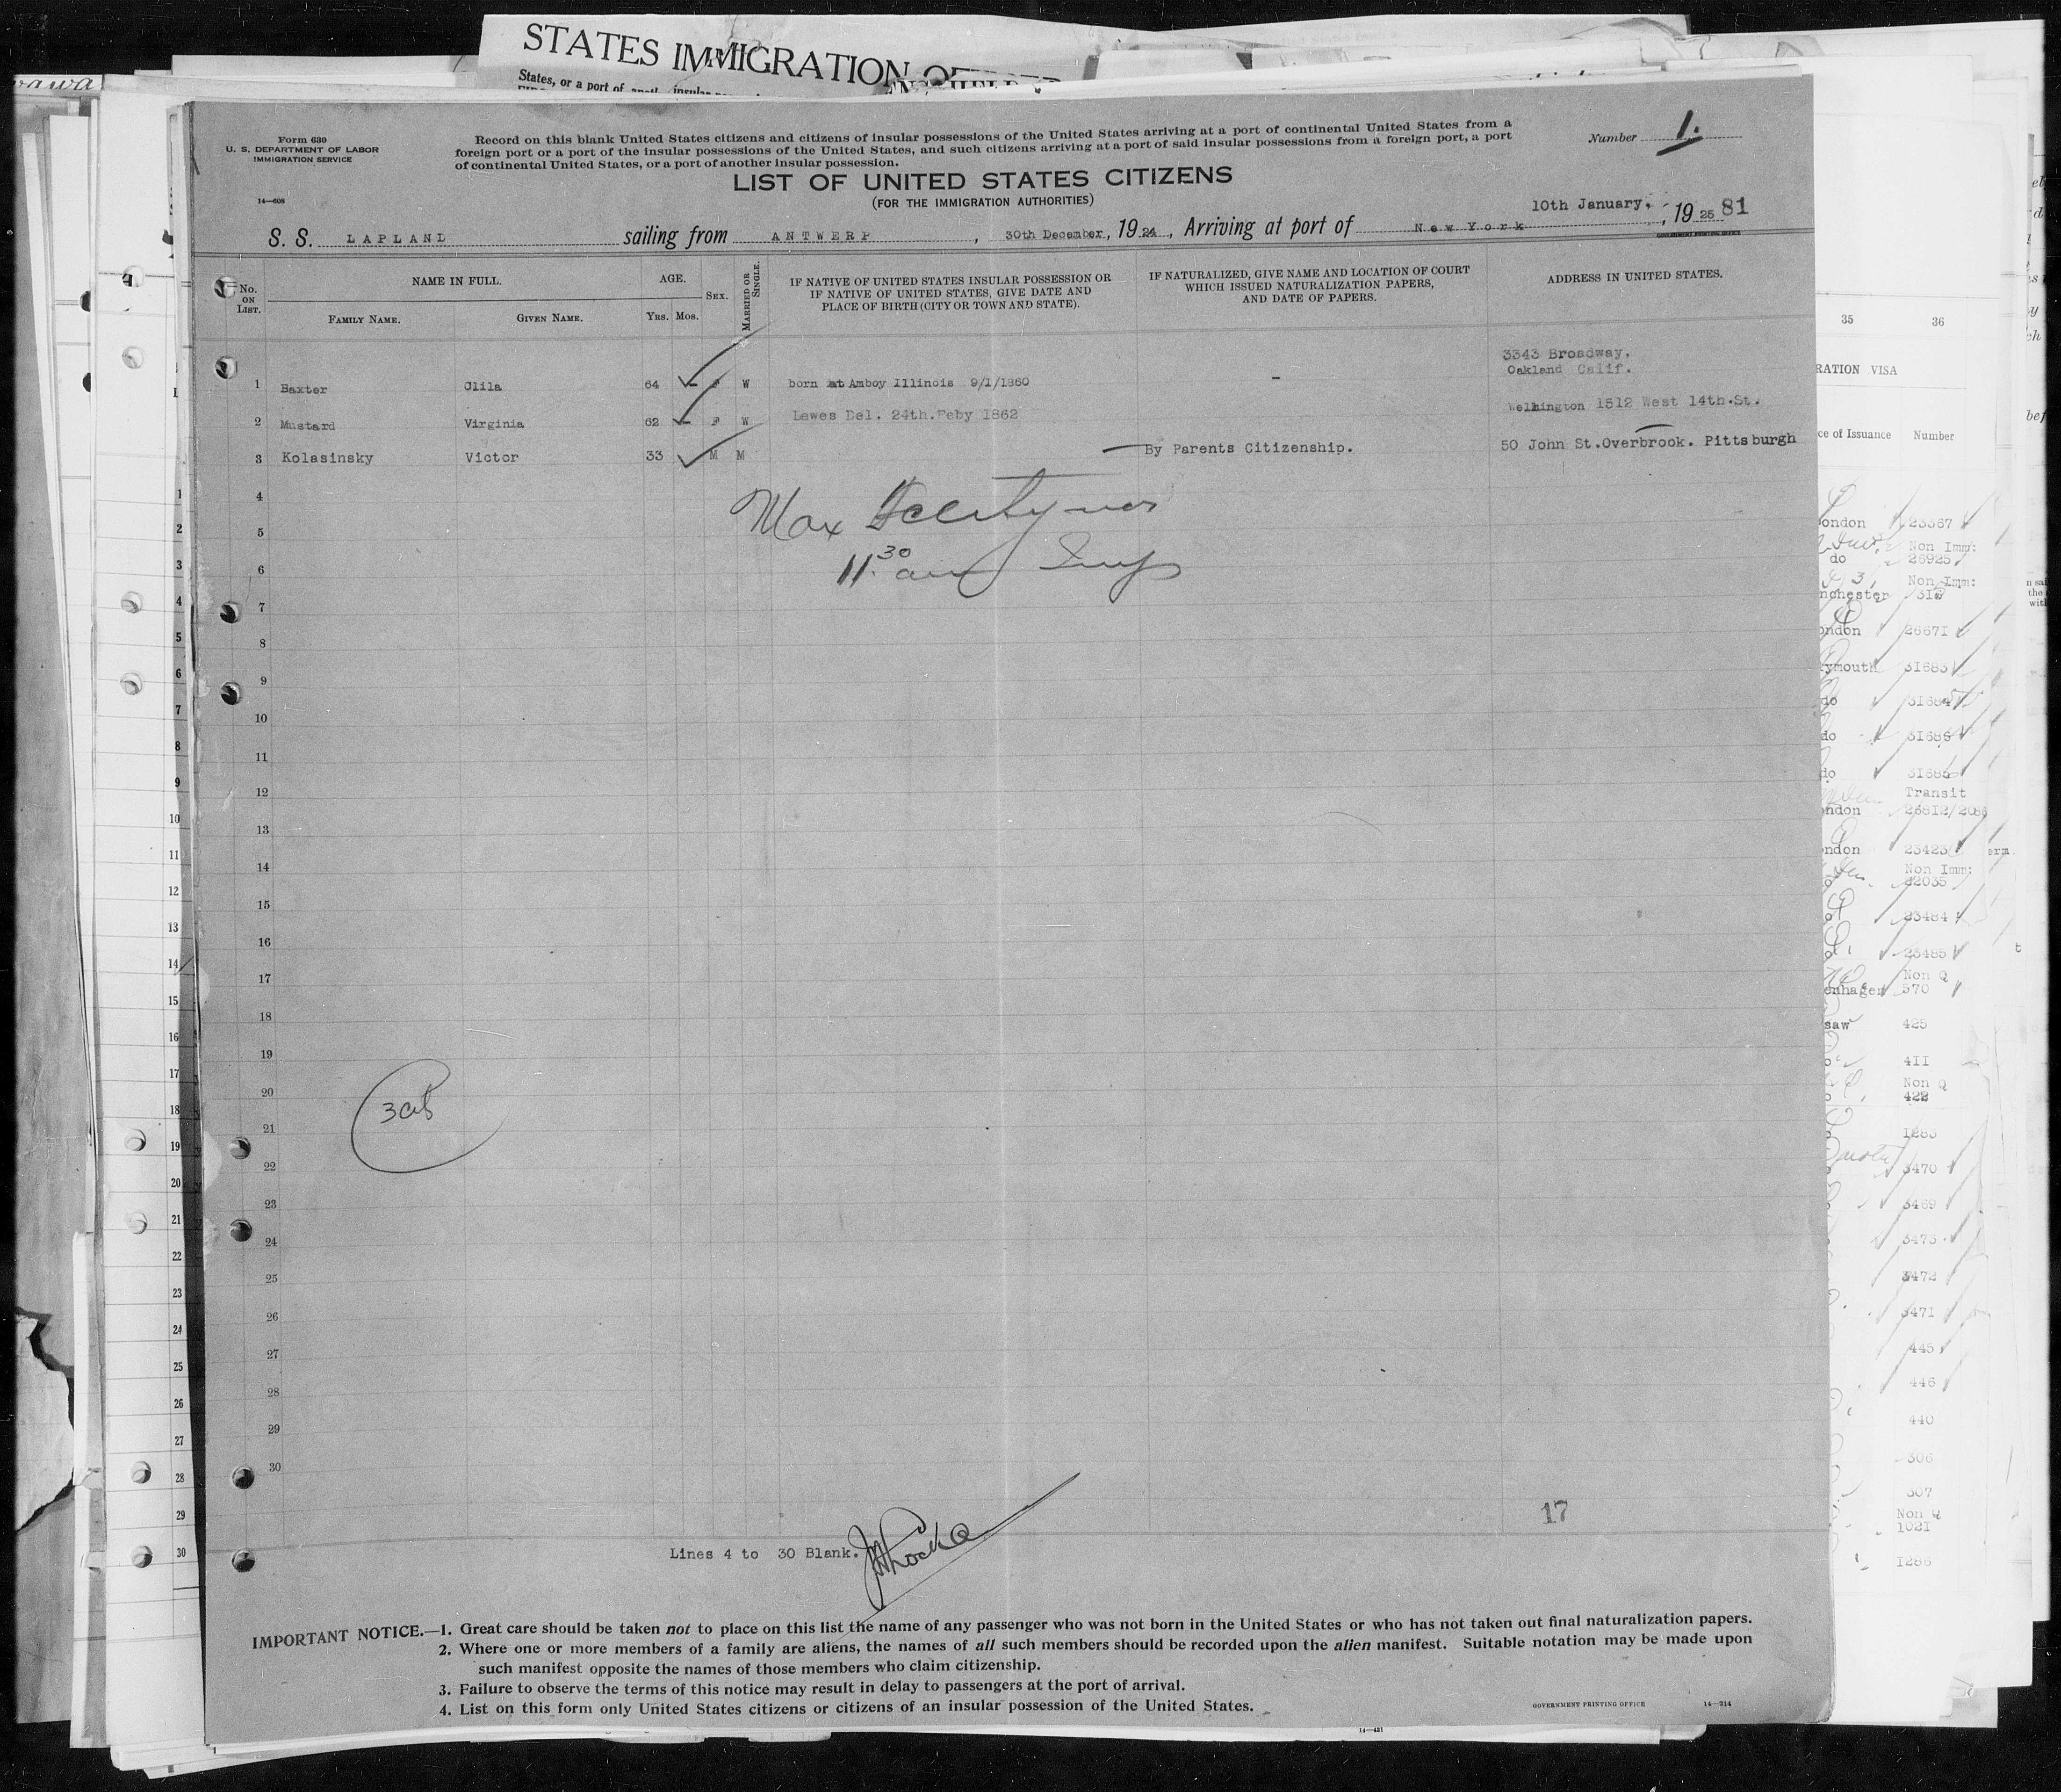 STATES IMMIGRATION
States, or a port of
Form 630
U. S. DEPARTMENT OF LABOR
IMMIGRATION SERVICE
14—608
Record on this blank United States citizens and citizens of insular possessions of the United States arriving at a port of continental United States from a
foreign port or a port of the insular possessions of the United States, and such citizens arriving at a port of said insular possessions from a foreign port, a port
of continental United States, or a port of another insular possession.
Number 1.
LIST OF UNITED STATES CITIZENS
(FOR THE IMMIGRATION AUTHORITIES)
S. S. LAPLAND sailing from ANTWERP, 30th December, 1924, Arriving at port of New York 10th January, 1925 81
GOVERNMENT PRINTING OFFICE
No. ON LIST.
NAME IN FULL.
FAMILY NAME. GIVEN NAME.
AGE.
YRS. MOS.
SEX.
MARRIED OR SINGLE.
IF NATIVE OF UNITED STATES INSULAR POSSESSION OR
IF NATIVE OF UNITED STATES, GIVE DATE AND
PLACE OF BIRTH (CITY OR TOWN AND STATE).
IF NATURALIZED, GIVE NAME AND LOCATION OF COURT
WHICH ISSUED NATURALIZATION PAPERS,
AND DATE OF PAPERS.
ADDRESS IN UNITED STATES.
3343 Broadway.
Oakland Calif.
1 Baxter Clila 64 - F W born at Amboy Illinois 9/1/1860 -
2 Mustard Virginia 62 - F W Lewes Del. 24th.Feby 1862 1512 West 14th.St.
3 Kolasinsky Victor 33 M M By Parents Citizenship. 50 John St.Overbrook. Pittsburgh
4
Max
5
11.30 am
6
7
8
9
10
11
12
13
14
15
16
17
18
19
20
21
22
23
24
25
26
27
28
29
30
17
Lines 4 to 30 Blank.
IMPORTANT NOTICE.—1. Great care should be taken not to place on this list the name of any passenger who was not born in the United States or who has not taken out final naturalization papers.
2. Where one or more members of a family are aliens, the names of all such members should be recorded upon the alien manifest. Suitable notation may be made upon
such manifest opposite the names of those members who claim citizenship.
3. Failure to observe the terms of this notice may result in delay to passengers at the port of arrival.
4. List on this form only United States citizens or citizens of an insular possession of the United States.
GOVERNMENT PRINTING OFFICE 14—214
35 36
RATION VISA
ce of Issuance Number
ondon 23367
Non Imm:
do 26925
Non Imm:
nchester
ondon 26671
ymouth 31683
do
do
do
Transit
ondon
ondon 23423
Non Imm:
32035
23484
23485
Non Q
enhagen 570
saw 425
411
Non Q
422
1283
3470
3469
3473
3472
3471
445
446
440
306
307
Non Q
1021
1286